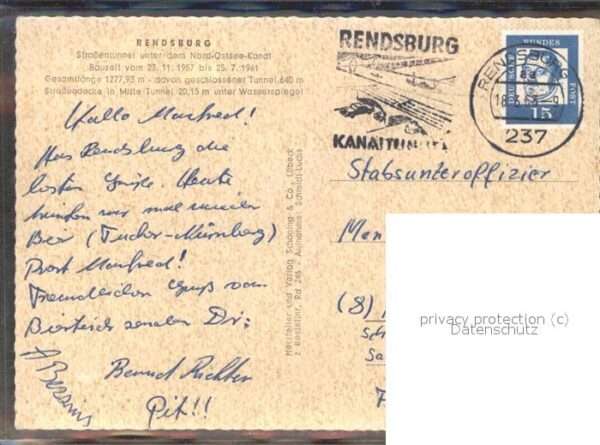 RENDSBURG
Straßentunnel unter dem Nord-Ostsee-Kanal
Bauzeit vom 23. 11. 1957 bis 25. 7. 1961
Gesamtlänge 1277,93 m - davon geschlossener Tunnel 640 m
Straßendecke in Mitte Tunnel 20,15 m unter Wasserspiegel
Hallo Manfred!
Aus Rendsburg die
besten Grüße. Heute
trinken wir mal
Bier (Tucher-Nürnberg)
Prost Manfred!
Freundlichen Gruß vom
senden Dir:
Bernd Richter
Pit!!
Hersteller und Verlag Schöning & Co., Lübeck
Rd 245 - Aufnahme: Schmidt-Luchs
RENDSBURG
KANALTUNNEL
DEUTSCHE BUNDESPOST
15
RENDSBURG
237
Stabsunteroffizier
(8)
privacy protection (c)
Datenschutz